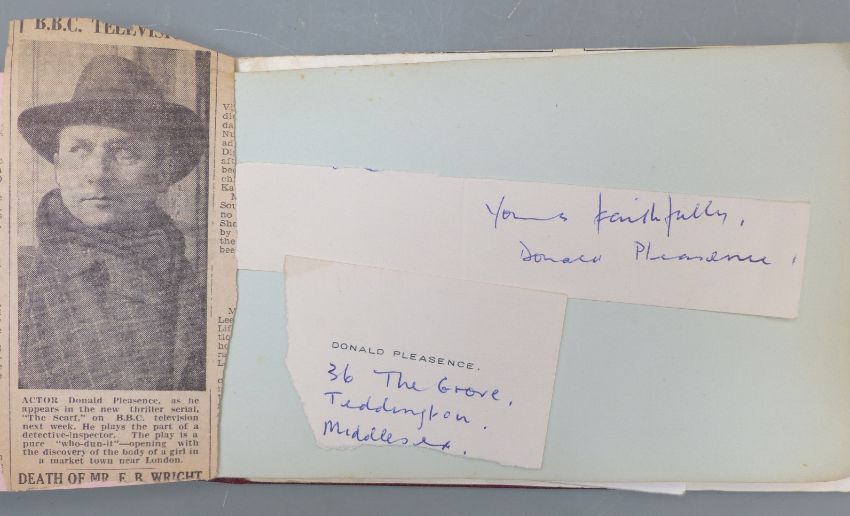 B.B.C. TELEVISI
ACTOR Donald Pleasence, as he
appears in the new thriller serial,
"The Scarf," on B.B.C. television
next week. He plays the part of a
detective-inspector. The play is a
pure "who-dun-it"—opening with
the discovery of the body of a girl in
a market town near London.
DEATH OF MR. F. B. WRIGHT
Yours faithfully,
Donald Pleasence.
DONALD PLEASENCE.
36 The Grove,
Teddington.
Middlesex.